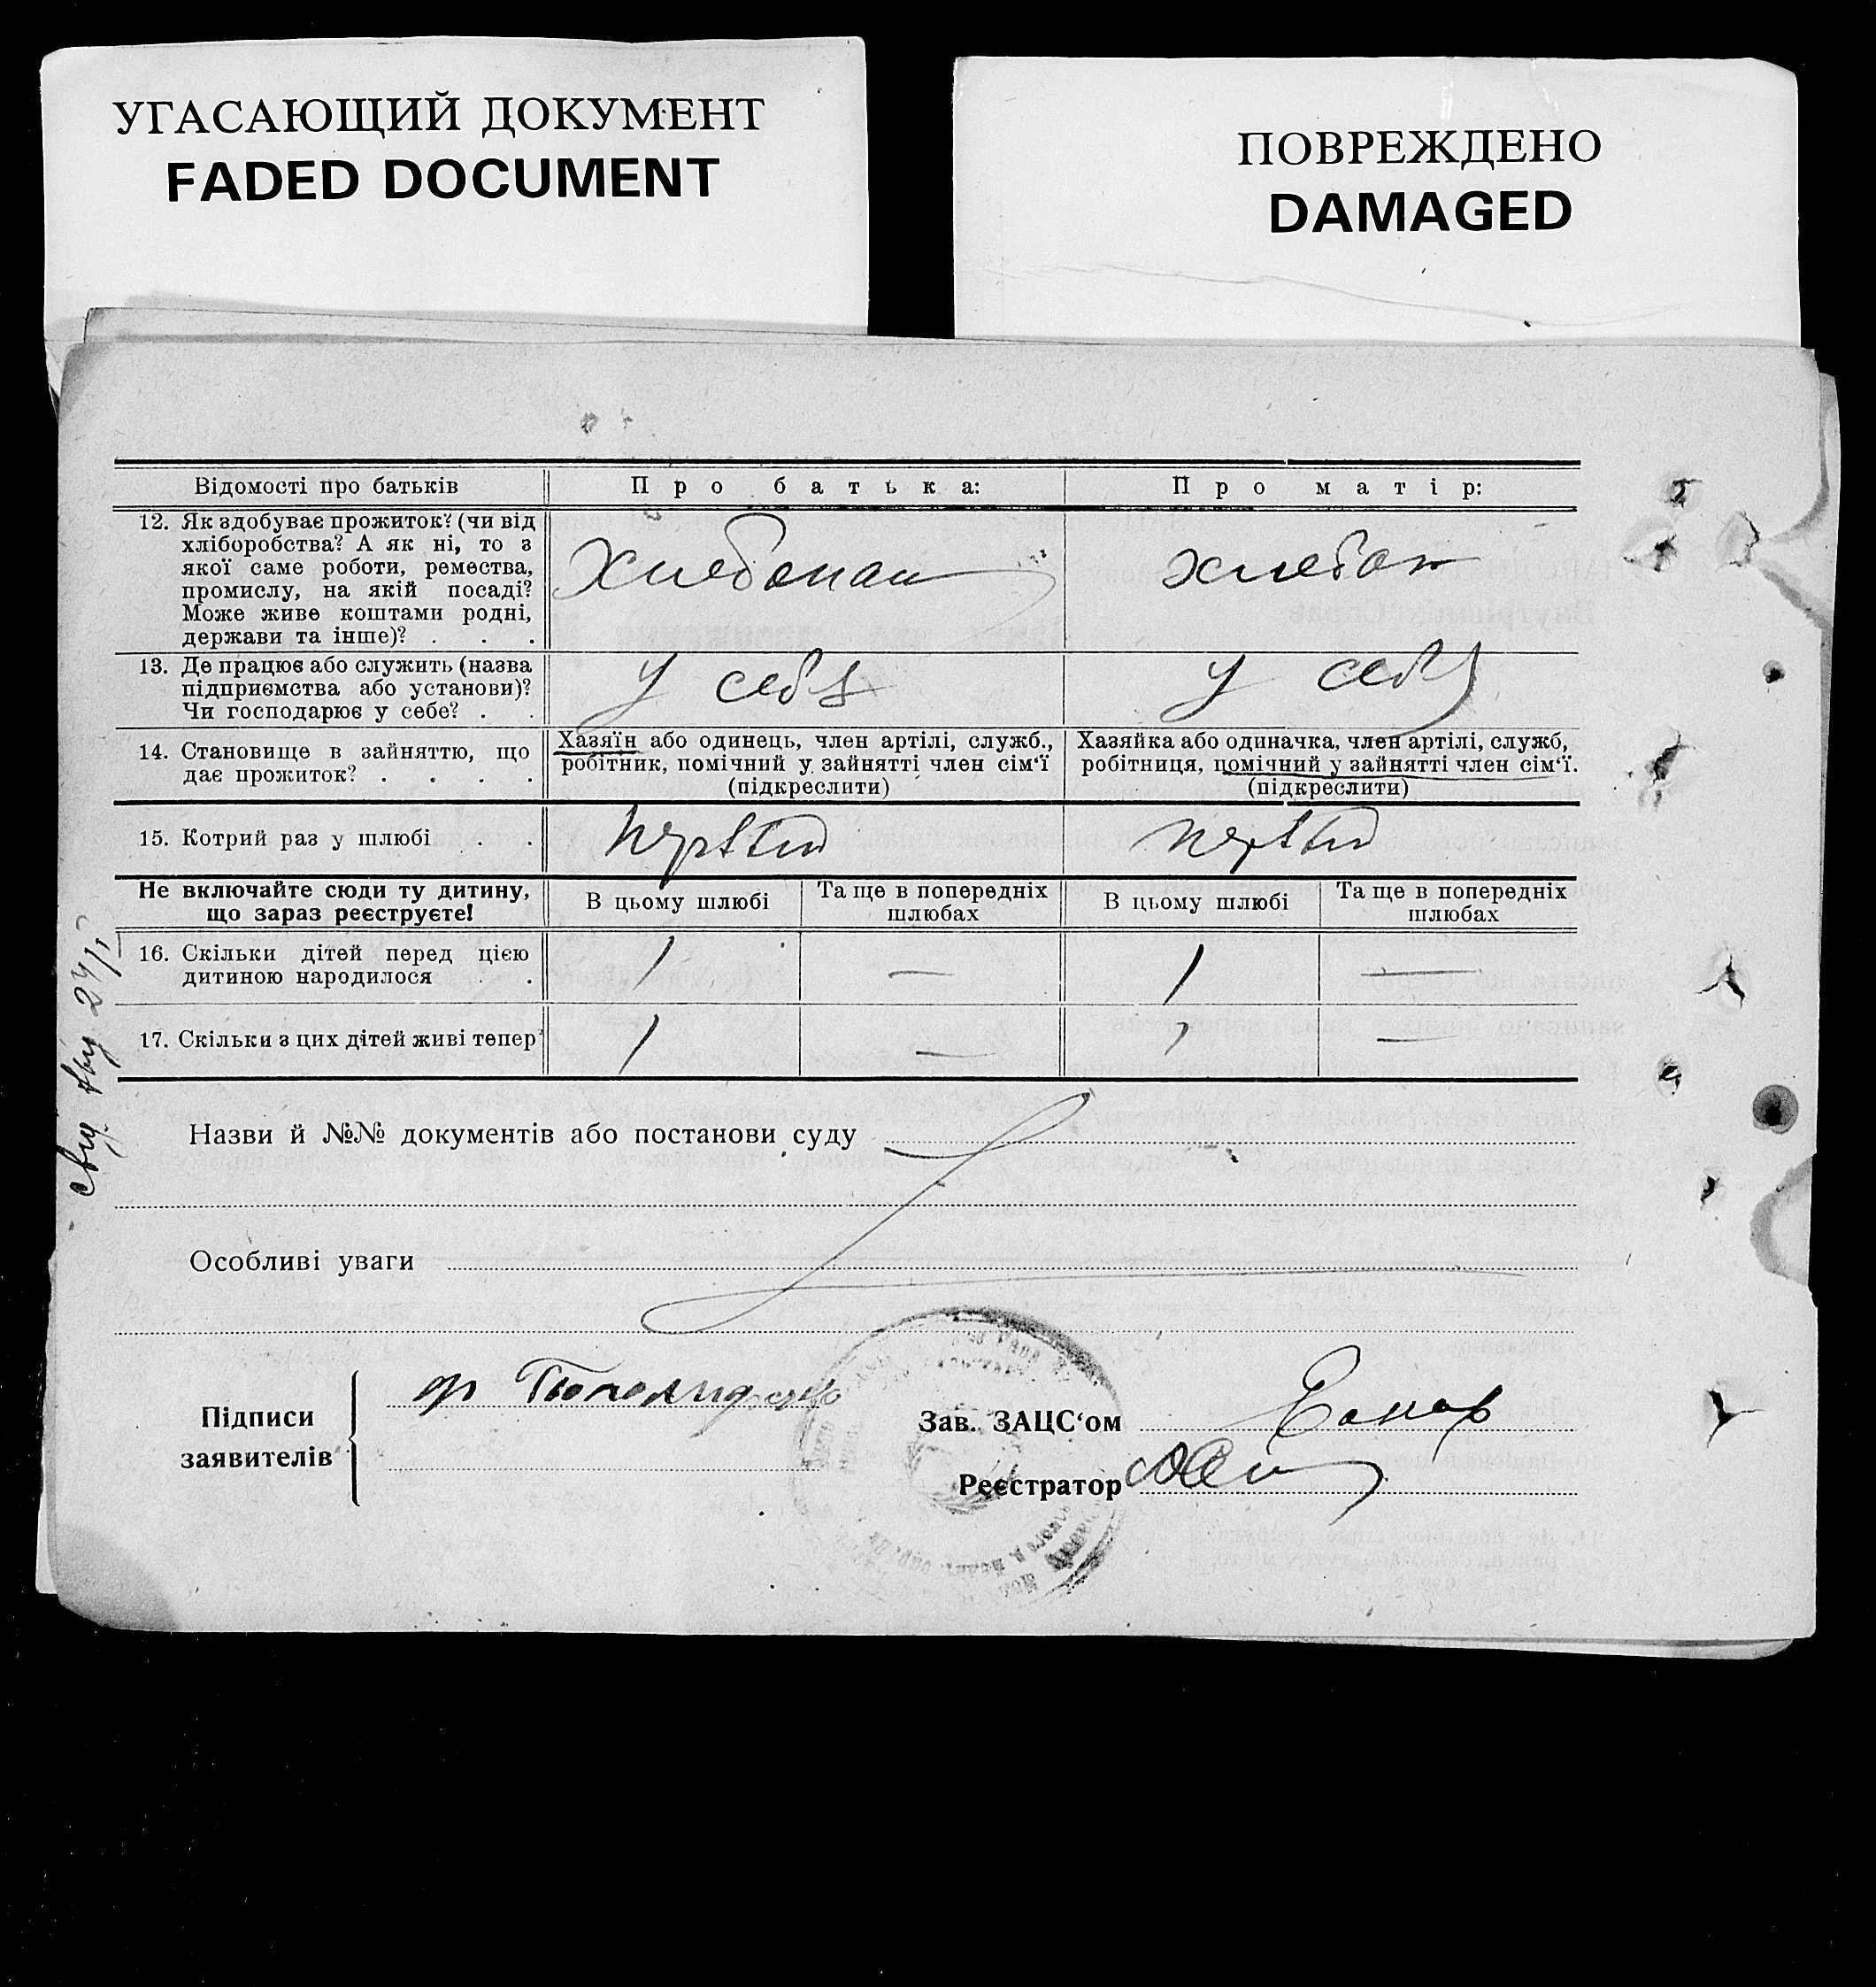 УГАСАЮЩИЙ ДОКУМЕНТ
FADED DOCUMENT
ПОВРЕЖДЕНО
DAMAGED
Відомості про батьків
Про батька:
Про матір:
12. Як здобуває прожиток? (чи від
хліборобства? А як ні, то з
якої саме роботи, ремества,
промислу, на якій посаді?
Може живе коштами родні,
держави та інше)? . . .
Хлебопаш
хлебоп
13. Де працює або служить (назва
підприємства або установи)?
Чи господарює у себе? . .
У себя
У себя
14. Становище в зайняттю, що
дає прожиток? . . . .
Хазяїн або одинець, член артілі, служб.,
робітник, помічний у зайнятті член сім'ї
(підкреслити)
Хазяйка або одиначка, член артілі, служб,
робітниця, помічний у зайнятті член сім'ї.
(підкреслити)
15. Котрий раз у шлюбі . .
первый
первый
Не включайте сюди ту дитину,
що зараз реєструєте!
В цьому шлюбі
Та ще в попередніх
шлюбах
В цьому шлюбі
Та ще в попередніх
шлюбах
16. Скільки дітей перед цією
дитиною народилося . .
1
—
1
—
17. Скільки з цих дітей живі тепер?
1
—
1
—
Назви й №№ документів або постанови суду
Особливі уваги
Підписи
заявителів
Зав. ЗАЦС'ом
Реєстратор